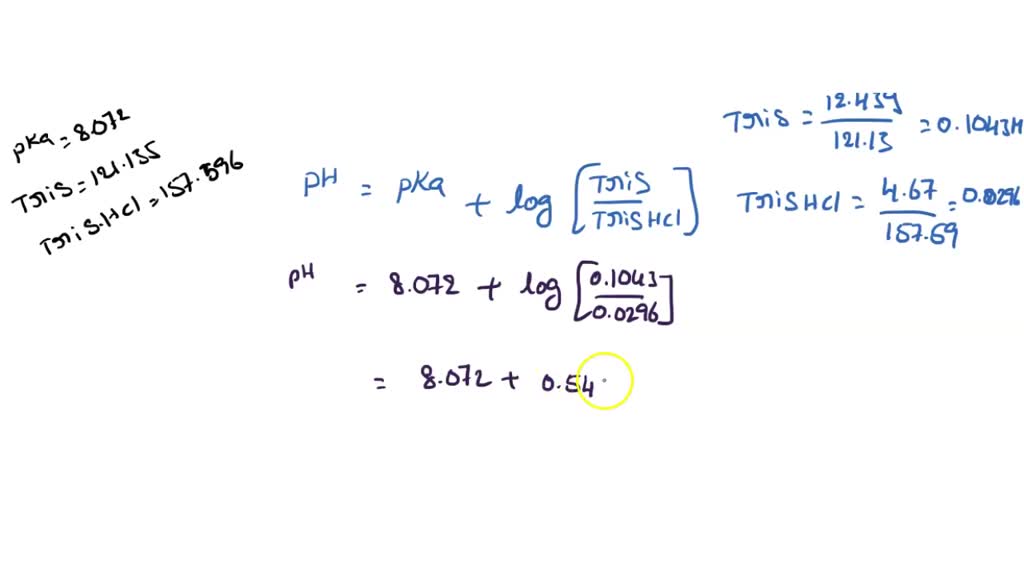 pKa = 8.072
Tris = 121.135
Tris.HCl = 157.596
pH = pKa + log [Tris / Tris HCl]
pH = 8.072 + log [0.1043 / 0.0296]
= 8.072 + 0.54
Tris = 12.43g / 121.13 = 0.1043M
Tris HCl = 4.67 / 157.59 = 0.0296